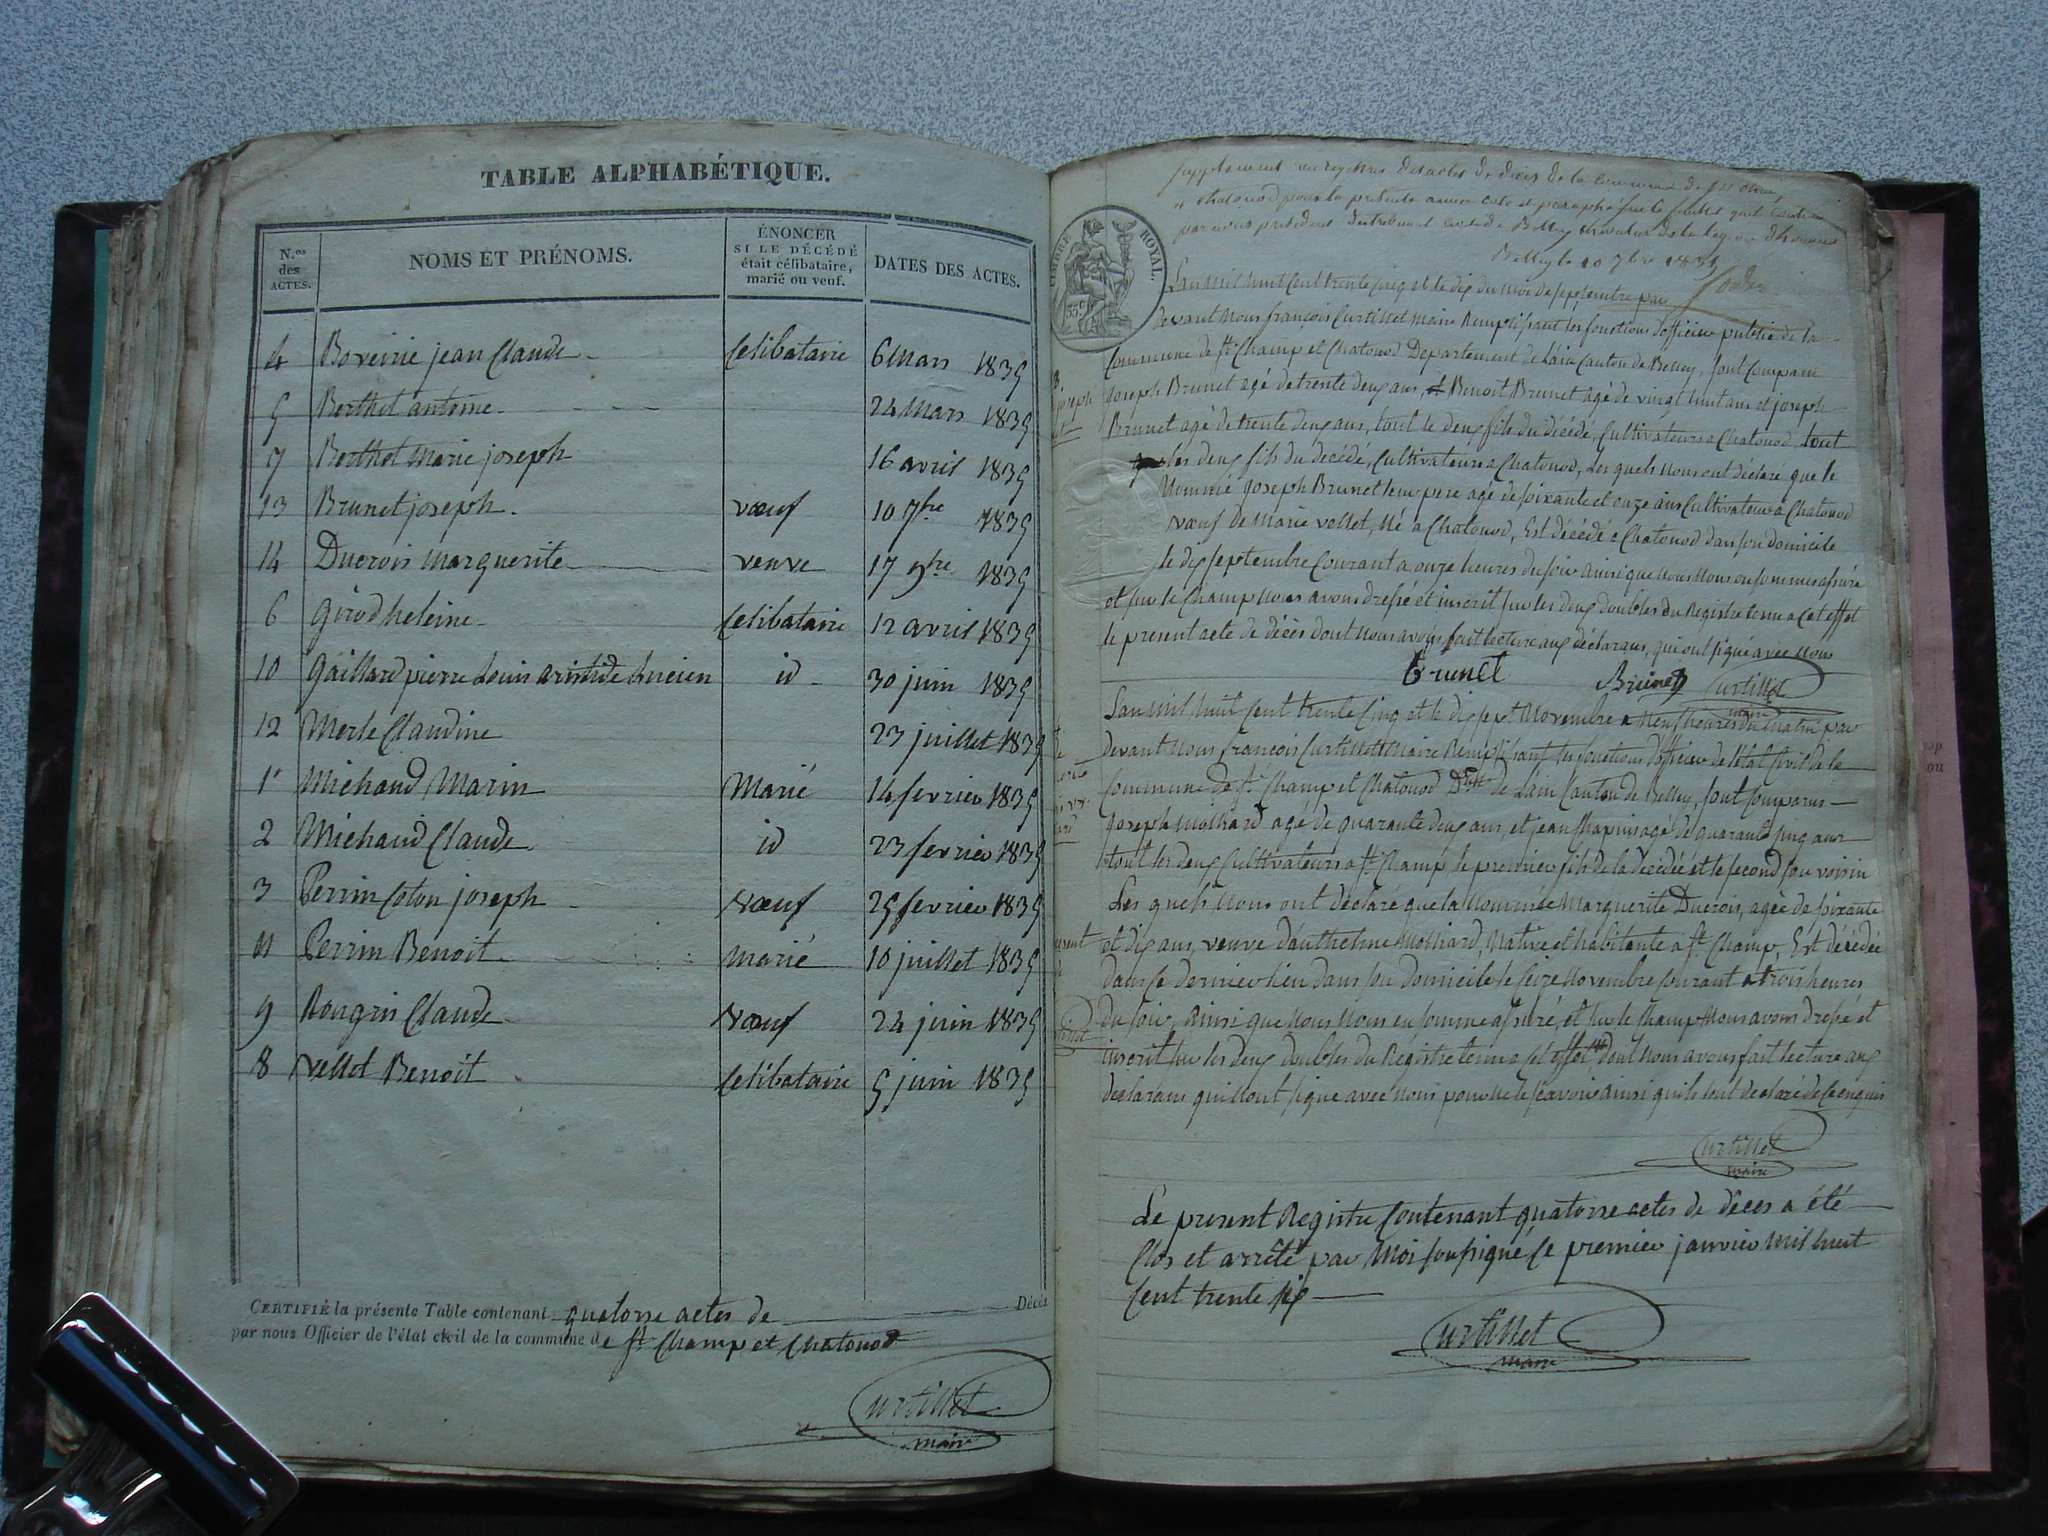 TABLE ALPHABÉTIQUE.
N.os des ACTES.
NOMS ET PRÉNOMS.
ÉNONCER
SI LE DÉCÉDÉ
était célibataire,
marié ou veuf.
DATES DES ACTES.
4 Boveirie jean Claude Celibataire 6 Mars 1835
5 Berthet antoine 24 Mars 1835
7 Berthet Marie joseph 16 avril 1835
13 Brunet joseph. vœuf 10 7bre 1835
14 Ducrois Marguerite veuve 17 9bre 1835
6 Girod heleine Celibataire 12 avril 1835
10 Gaillard pierre Louis aristide Lucien id 30 juin 1835
12 Merle Claudine 23 juillet 1835
1 Michaud Marin Marié 14 fevrier 1835
2 Michaud Claude id 23 fevrier 1835
3 Perrin Coton joseph vœuf 25 fevrier 1835
11 Perrin Benoit Marié 10 juillet 1835
9 Rougin Claude vœuf 24 juin 1835
8 Vellet Benoit Celibataire 5 juin 1835
CERTIFIÉ la présente Table contenant quatorse actes de Décès
par nous Officier de l'état civil de la commune de St Champ et Chatonod
Curtillet
maire
TIMBRE ROYAL.
35 C
supplement au registre des actes de décès de la commune de St Champ
et Chatonod pour la presente année coté et paraphé
par nous president du tribunal civil de Belley chevalier de la legion d'honneur
Belley le 10 7bre 1835
L'an mil huit cent trente cinq et le dix du mois de septembre par
devant Nous françois Curtillet maire Remplissant les fonctions d'officier public de la
Commune de St Champ et Chatonod Departement de l'ain Canton de Belley, sont Comparu
joseph Brunet agé de trente deux ans, et Benoit Brunet agé de vingt huit ans et joseph
Brunet agé de trente deux ans, tout le deux fils du décédé, Cultivateurs a Chatonod, tout
les deux fils du décédé, Cultivateurs a Chatonod, Les quels Nous ont déclaré que le
Nommé joseph Brunet leur pere agé de soixante et onze ans Cultivateur a Chatonod
vœuf de Marie vellet, Né a Chatonod, Est décédé a Chatonod dans son domicile
le dix septembre Courant a onze heures du soir ainsi que Nous Nous en sommes assuré
et sur le Champ Nous avons dressé et inscrit sur les deux doubles du Registre tenu a Cet effet
le present acte de décès dont Nous avons fait lecture aux déclarans, qui ont signé avec Nous
Brunet Brunet Curtillet
maire
L'an mil huit cent trente Cinq et le dix sept Novembre a Neuf heures du matin par
devant Nous françois Curtillet Maire Remplissant les fonctions d'officier de l'état Civil de la
Commune de St Champ et Chatonod Dpt de L'ain Canton de Belley, sont Comparus
joseph Molliard agé de quarante deux ans, et jean Chapuis agé de quarante cinq ans
tout les deux Cultivateurs a St Champ le premier fils de la décédée et le second son voisin
Les quels Nous ont déclaré que la Nommée Marguerite Ducrois, agée de soixante
et dix ans, veuve d'anthelme Molliard, Native et habitante a St Champ, Est décédée
dans ce dernier lieu dans son domicile le seize Novembre Courant a trois heures
du soir, ainsi que Nous Nous en somme assuré, et sur le Champ Nous avons dressé et
inscrit sur les deux doubles du Régistre tenu a Cet effet dont Nous avons fait lecture aux
declarans qui n'ont signé avec Nous pour ne le sçavoir ainsi qu'ils l'ont declaré de Ce enquis
Curtillet
maire
Le present Registre Contenant quatorse actes de décès a été
Clos et arrêté par Moi soussigné Ce premier janvier mil huit
Cent trente six
Curtillet
maire